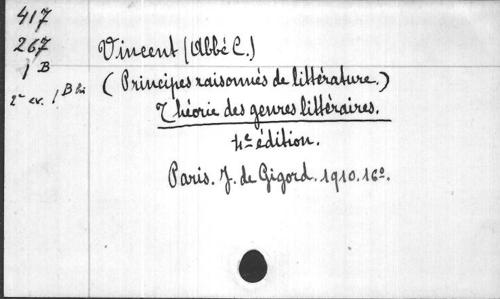 417
267
1 B
2e ex. 1 B bis
Vincent (Abbé C.)
(Principes raisonnés de littérature.)
Théorie des genres littéraires.
4e édition.
Paris. J. de Gigord. 1910. 16o.